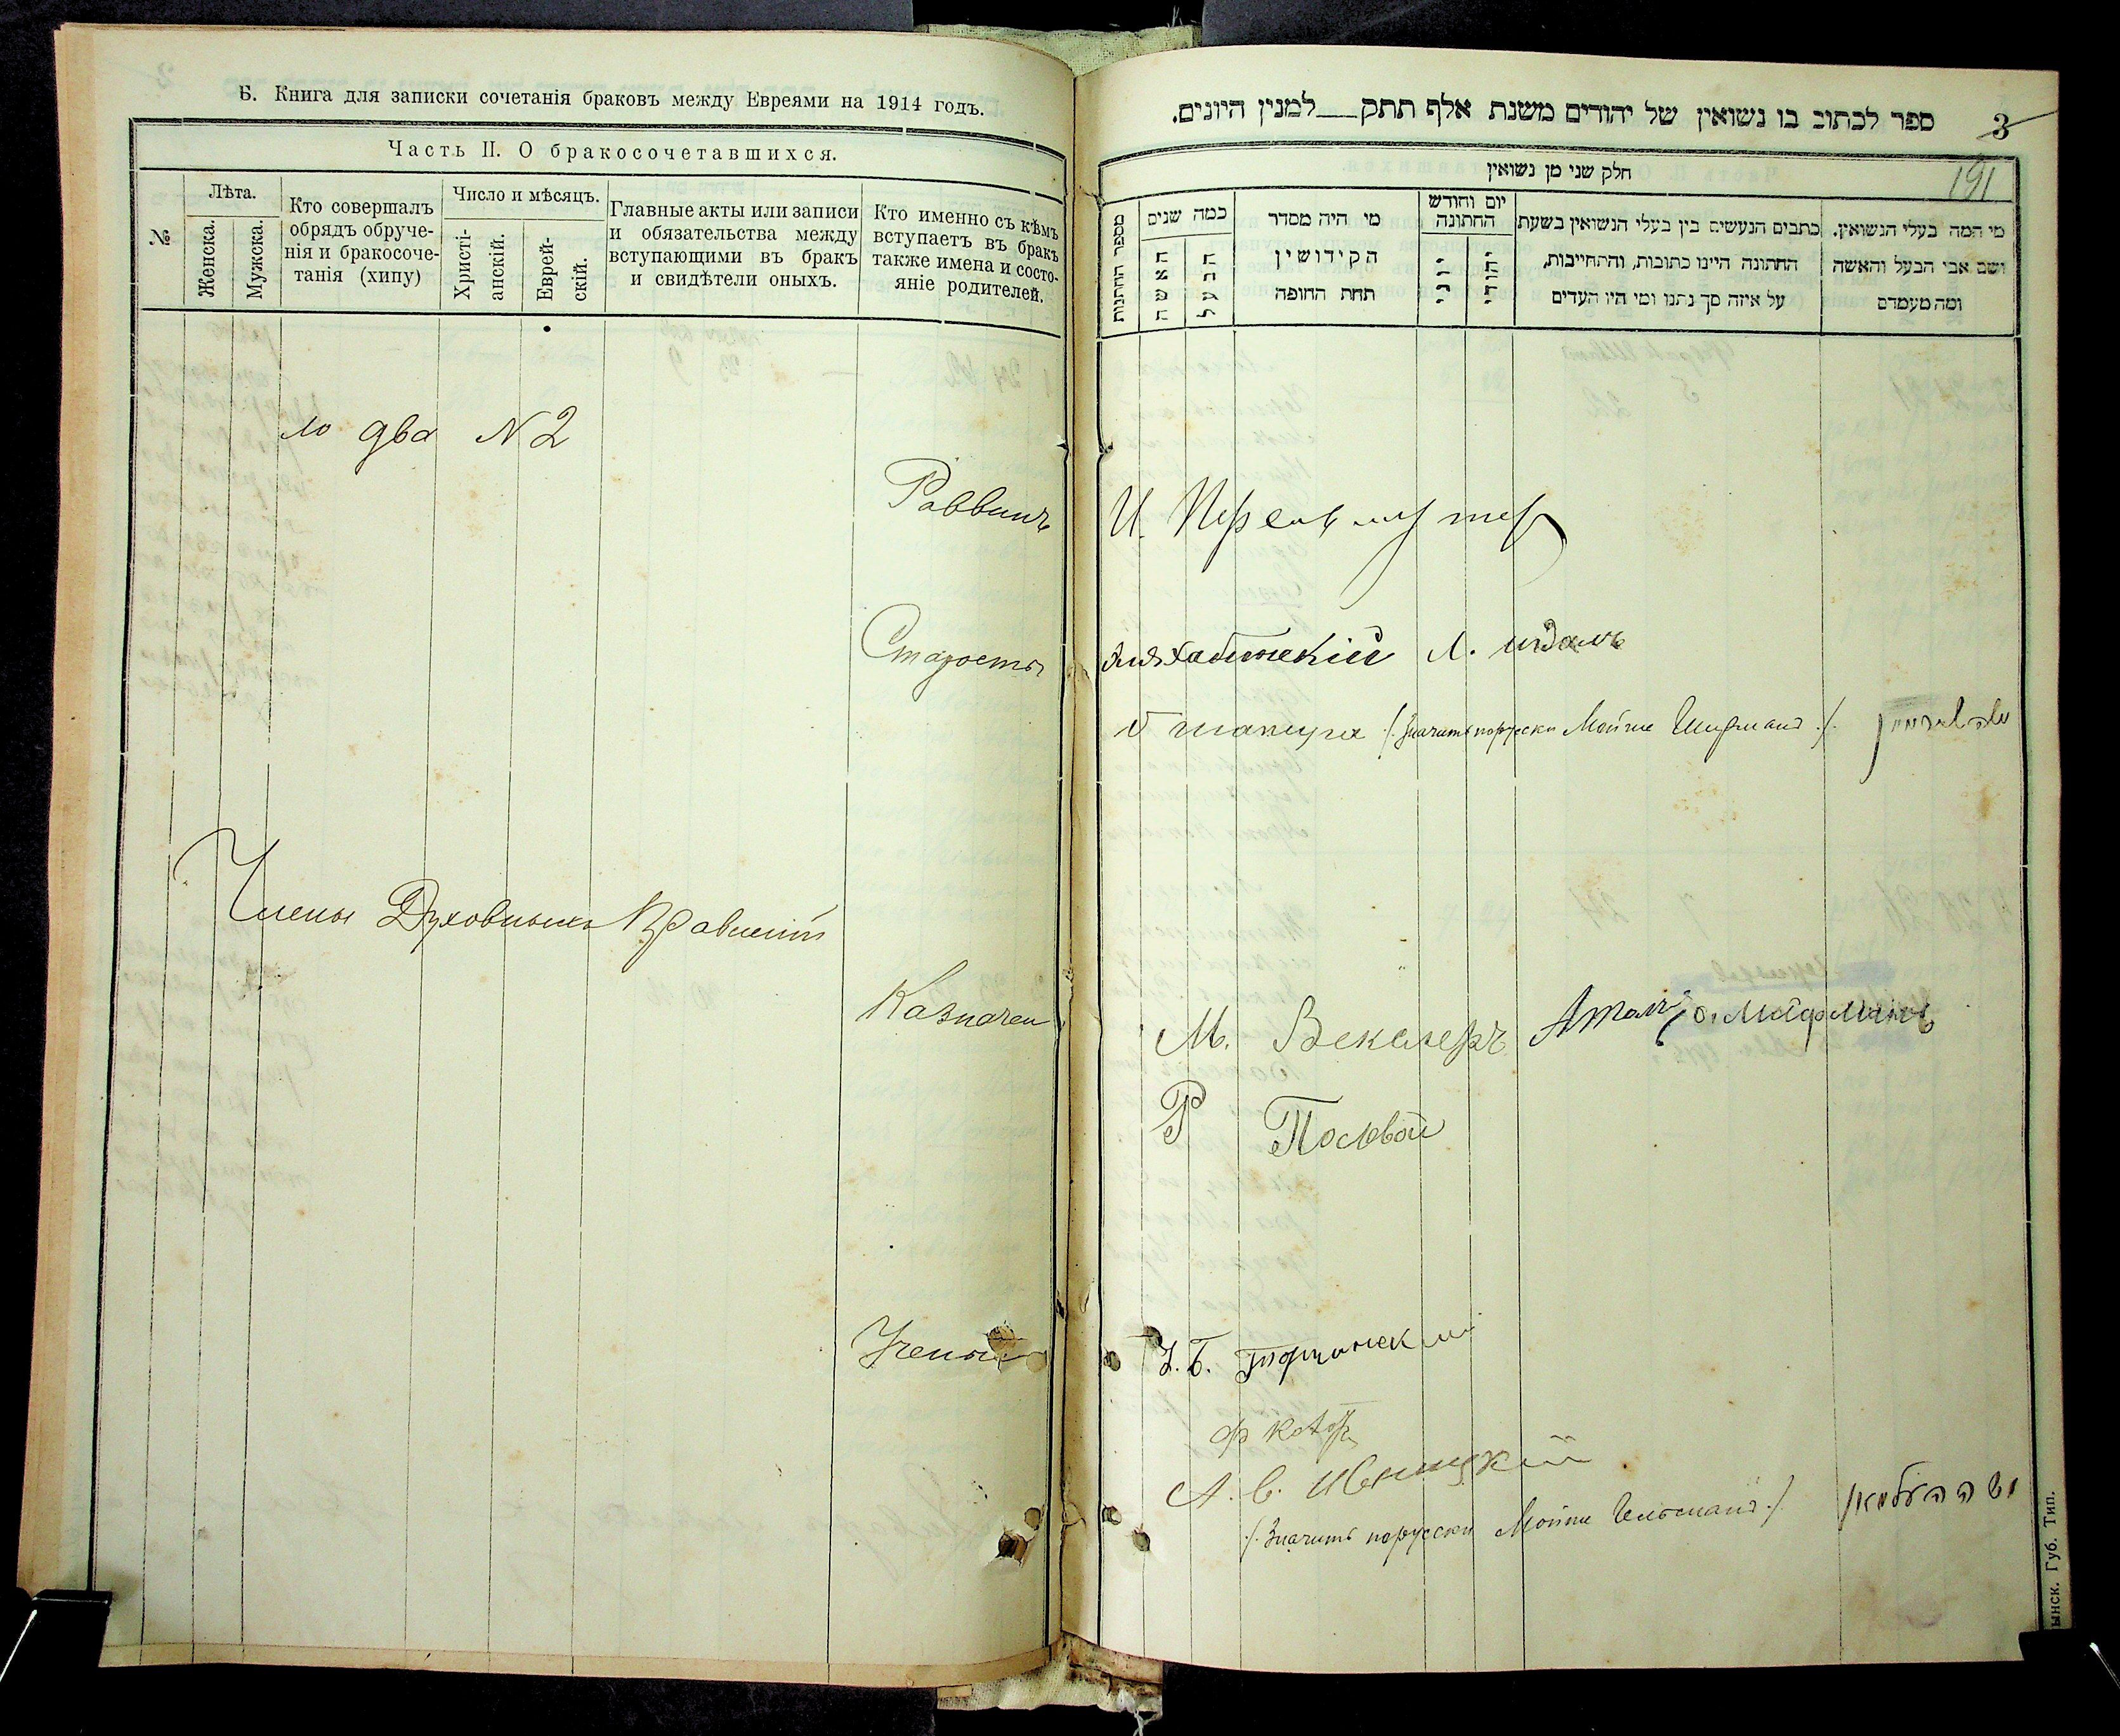 Б. Книга для записки сочетанія браковъ между Евреями на 1914 годъ.
Часть II. О бракосочетавшихся.
№
Лѣта.
Женска.
Мужска.
Кто совершалъ
обрядъ обруче-
нія и бракосоче-
танія (хипу)
Число и мѣсяцъ.
Христі-
анскій.
Еврей-
скій.
Главные акты или записи
и обязательства между
вступающими въ бракъ
и свидѣтели оныхъ.
Кто именно съ кѣмъ
вступаетъ въ бракъ
также имена и состо-
яніе родителей.
ло два N 2
Раввинъ
Старосты
Члены Духовныхъ Правленій
Казначеи
Ученый
ספר לכתוב בו נשואין של יהודים משנת אלף תתק___למנין היונים.
3
191
חלק שני מן נשואין
מספר החתונות
כמה שנים
האשה
הבעל
מי היה מסדר
הקידושין
תחת החופה
יום וחודש
החתונה
יוני
יהודי
כתבים הנעשים בין בעלי הנשואין בשעת
החתונה היינו כתובות, והתחייבות,
על איזה סך נתנו ומי היו העדים
מי המה בעלי הנשואין.
ושם אבי הבעל והאשה
ומה מעמדם
И.
Л.
/. Значитъ порусски Мойше Шифманъ ./.
М. Векслеръ
Р
Э. Б.
А.
/. Значитъ порусски Мойше Гельманъ ./
ынск. Губ. Тип.